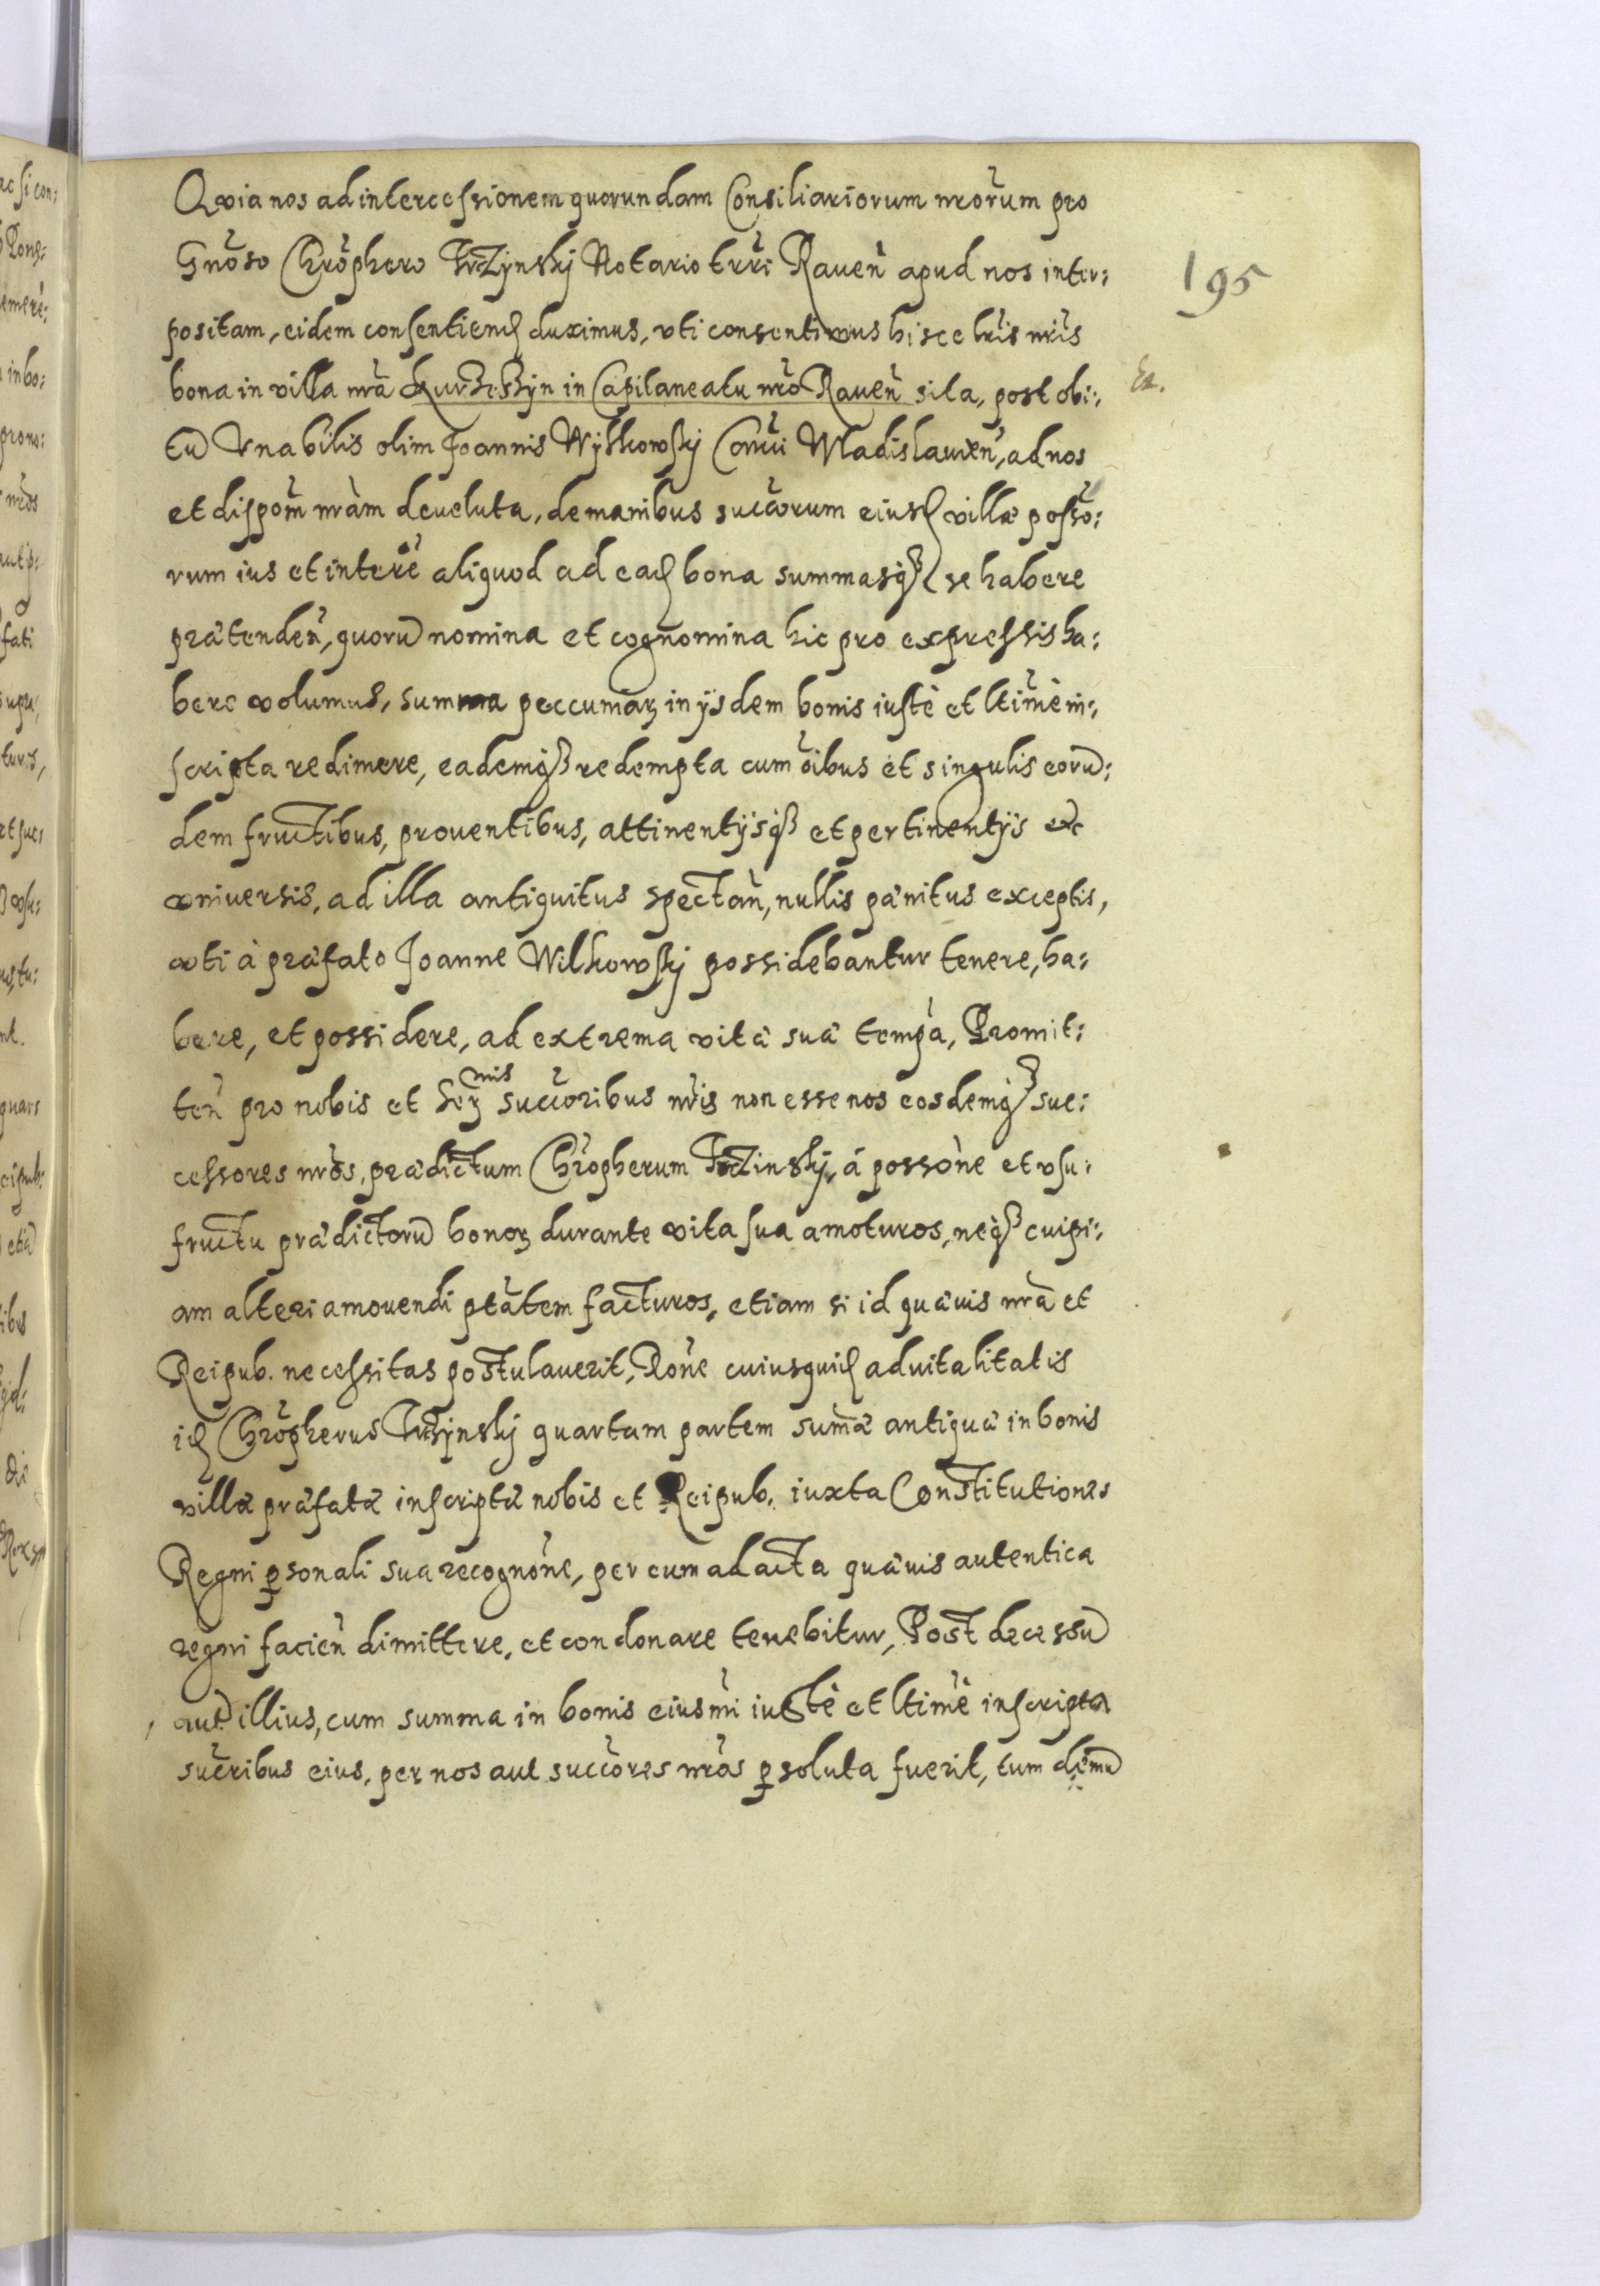 Quia nos ad intercessionem quorundam Consiliariorum nrorum pro
Gnoso Chrophero Trzynskj Notario trrę Raven apud nos inter:
195
positam, eidem consentiend duximus, vti consentimus hisce lris nris
bona in villa nra in Capitaneatu nro Raven sita, post obi:
Ex.
tu Vnabilis olim Joannis Wylkowskj Canci Wladislauien, ad nos
et dispom nram deueluta, de manibus succorum eiusd villæ posso:
rum ius et intere aliquod ad ead bona summasq se habere
prætenden, quoru nomina et cognomina hic pro expressis ha:
bere volumus, summa peccuniar in ysdem bonis iuste et ltime in:
scripta redimere, eademq redempta cum oibus et singulis eoru:
dem fructibus, prouentibus, attinentysq et pertinentys
vniuersis, ad illa antiquitus spectan, nullis pænitus exceptis,
vti à præfato Joanne Wilkowskj possidebantur tenere, ha:
bere, et possidere, ad extrema vitæ suæ tempa, Promit:
mis
ten pro nobis et Ser succoribus nris non esse nos eosdemq suc:
cessores nros, prædictum Chropherum Trzinskj, á possone et vsu:
fructu prædictoru bonor durante vita sua amoturos, neq cuipi:
am alteri amouendi ptatem facturos, etiam si id quæuis nra et
Reipub. necessitas postulauerit, Rone cuiusquid aduitalitatis
id Chropherus Trzynskj quartam partem sumæ antiquæ in bonis
villæ præfatæ inscriptæ nobis et Reipub. iuxta Constitutiones
Regni psonali sua recognone, per eum ad acta quæuis autentica
regni facien dimittere, et condonare tenebitur, Post decessu
aut illius, cum summa in bonis eiusmi iuste et ltime inscripta
succribus eius, per nos aut succores nros psoluta fuerit, tum demu